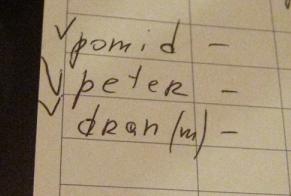 ✓ pomid –
✓ peter –
✓ dran (m) –